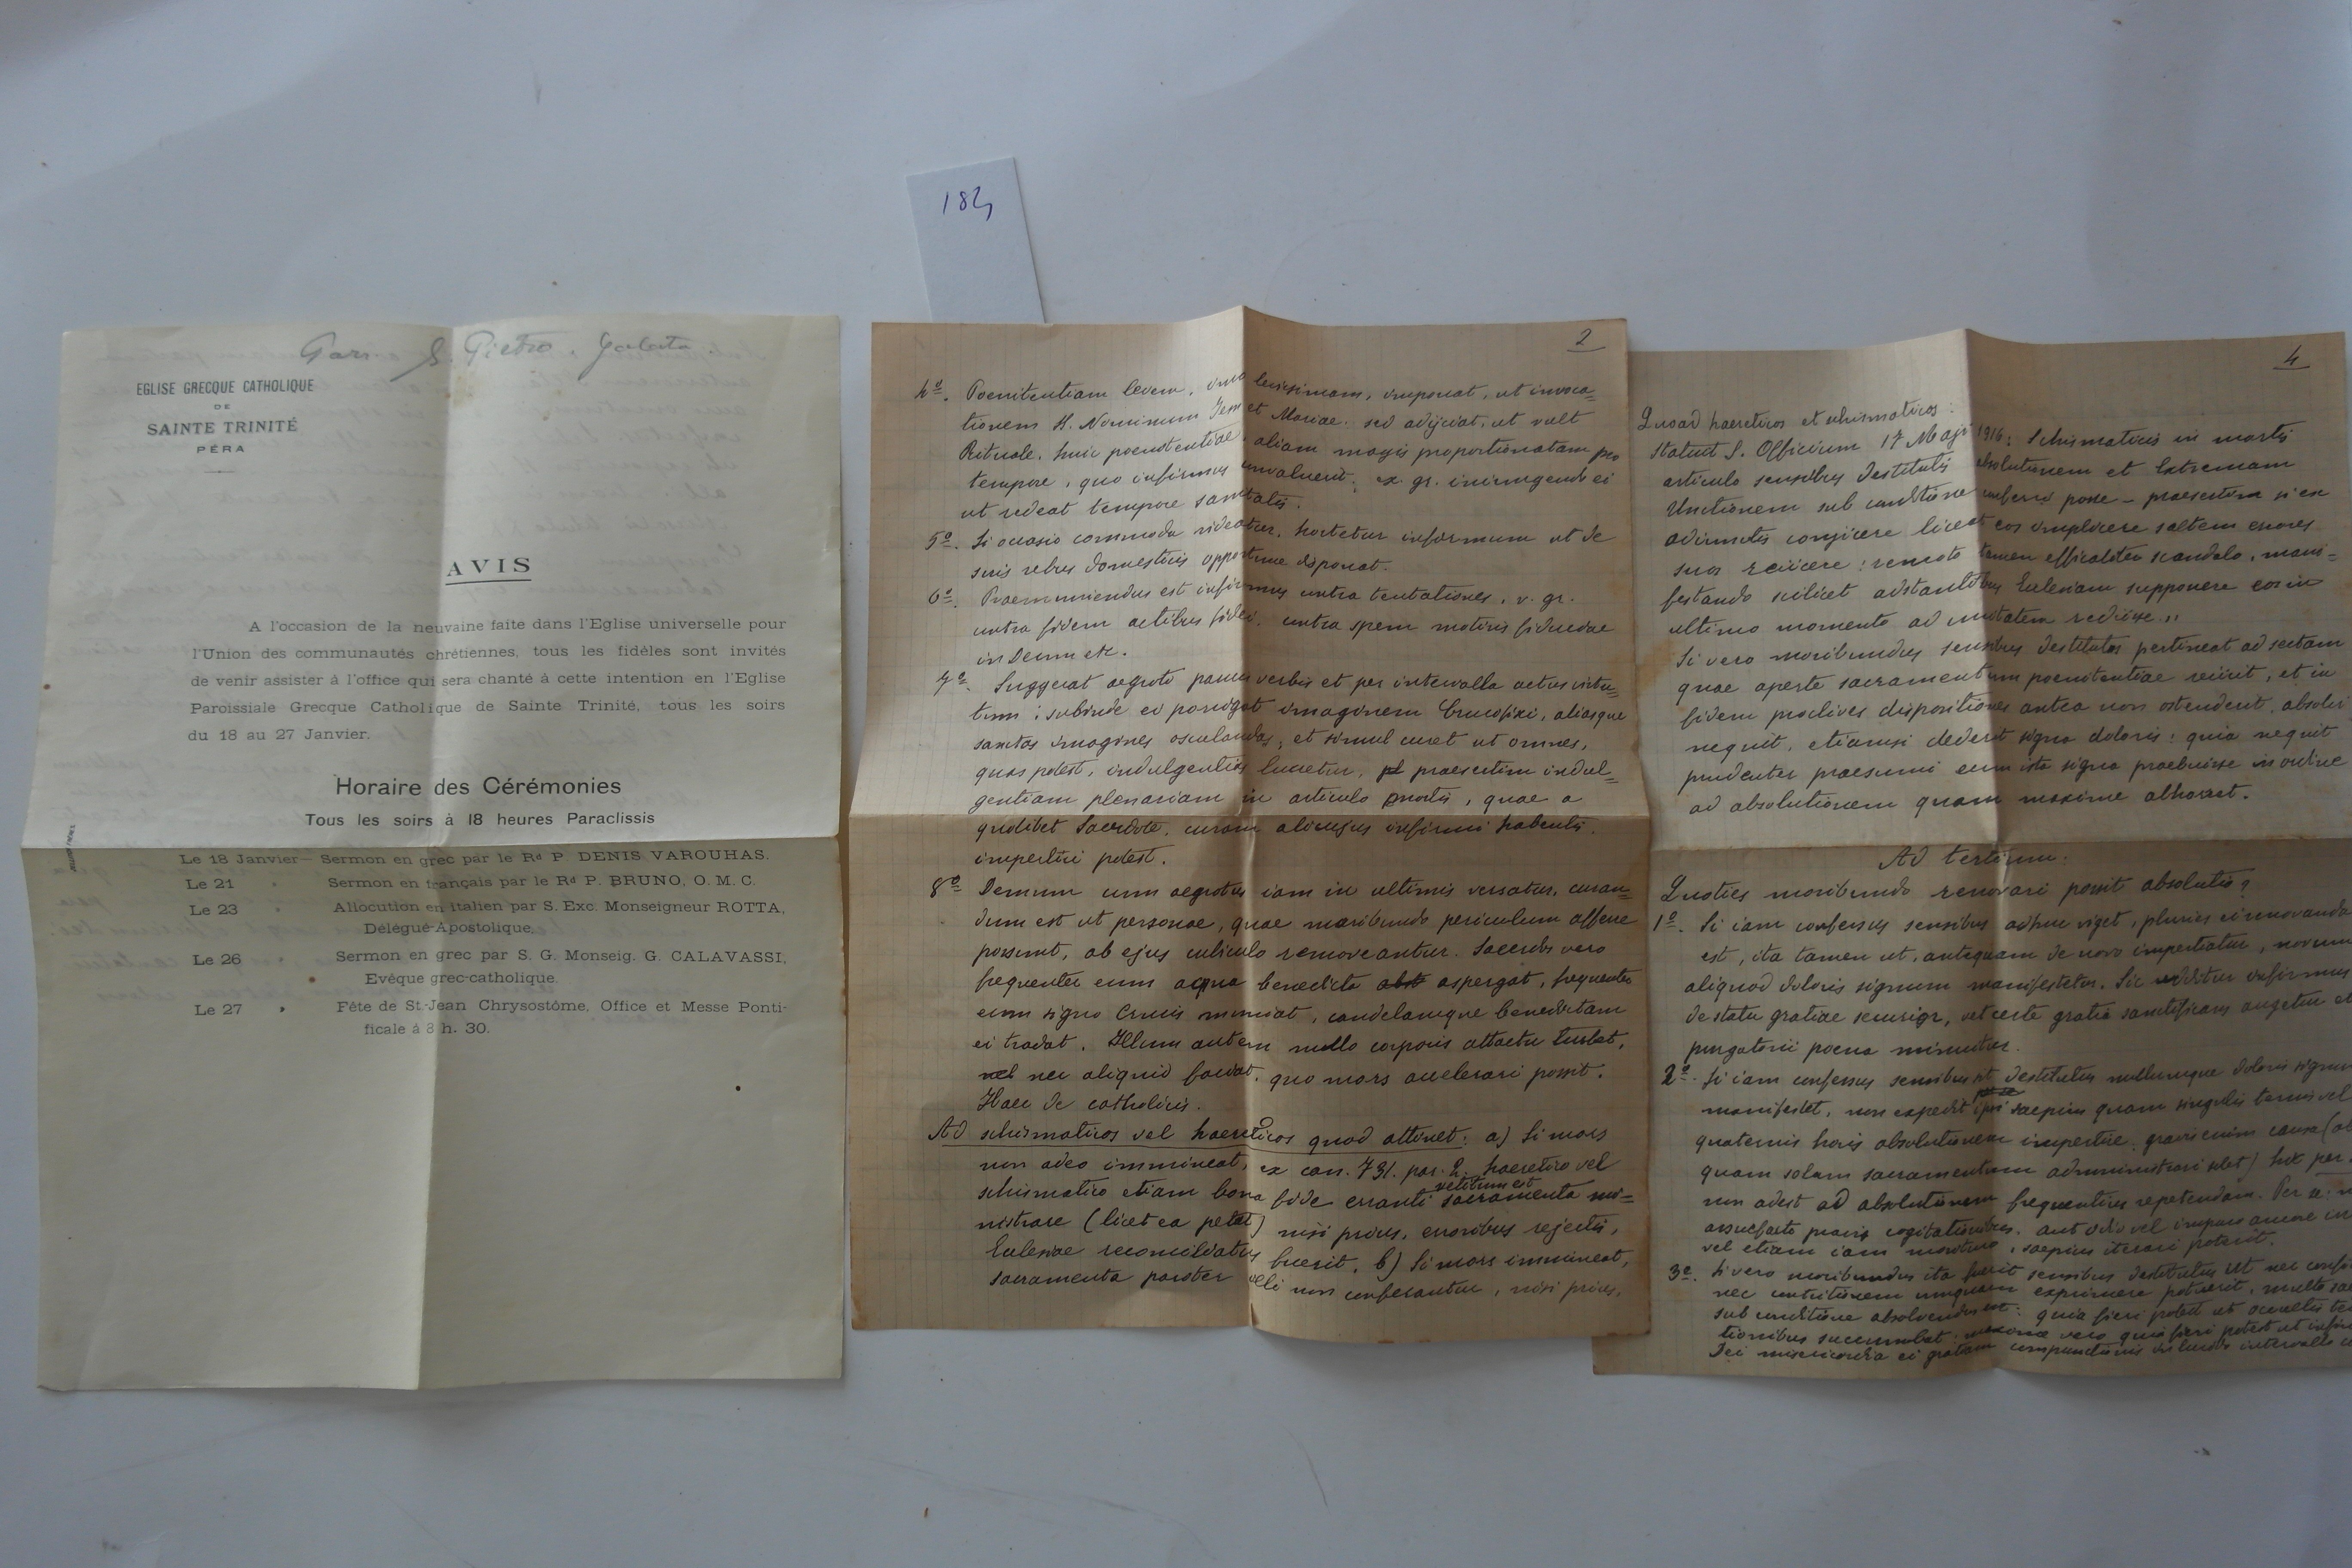 184
S. Pietro. Galata.
EGLISE GRECQUE CATHOLIQUE
DE
SAINTE TRINITÉ
PÉRA
AVIS
A l'occasion de la neuvaine faite dans l'Eglise universelle pour
l'Union des communautés chrétiennes, tous les fidéles sont invités
de venir assister à l'office qui sera chanté à cette intention en l'Eglise
Paroissiale Grecque Catholique de Sainte Trinité, tous les soirs
du 18 au 27 Janvier.
Horaire des Cérémonies
Tous les soirs à 18 heures Paraclissis
Le 18 Janvier— Sermon en grec par le Rd P. DENIS VAROUHAS.
Le 21 » Sermon en français par le Rd P. BRUNO, O. M. C.
Le 23 » Allocution en Italien par S. Exc. Monseigneur ROTTA,
Délégué-Apostolique.
Le 26 » Sermon en grec par S. G. Monseig. G. CALAVASSI,
Evêque grec-catholique.
Le 27 » Fête de St-Jean Chrysostôme, Office et Messe Ponti-
ficale à 8 h. 30.
2
4º. Poenitentiam levem, imo levissimam, imponat, ut invoca=
tionem H. Nominum Jesu et Mariae: sed adijciat, ut vult
Rituale, huic poenitentiae, aliam magis proportionatam pro
tempore, quo infirmus convaluerit; ex. gr. iniungendo ei
ut redeat tempore sanitatis.
5º. Si occasio commoda videatur, hortetur infirmum ut de
suis rebus domesticis opportune disponat.
6º. Praemuniendus est infirmus contra tentationes, v. gr.
contra fidem actibus fidei, contra spem motivis fiduciae
in Deum etc.
7º. Suggerat aegroto paucis verbis et per intervalla actus virtu=
tum; subinde ei porrigat imaginem Crucifixi, aliasque
sanctas imagines osculandas, et simul curet ut omnes,
quas potest, indulgentias lucretur, praesertim indul=
gentiam plenariam in articulo mortis, quae a
quolibet Sacerdote, curam alicujus infirmi habenti,
impertiri potest.
8º Demum cum aegrotus iam in ultimis versatur, curan=
dum est ut personae, quae moribundo periculum afferre
possunt, ab ejus cubiculo removeantur. Sacerdos vero
frequenter eum aqua benedicta aspergat, frequenter
eum signo Crucis muniat, candelamque benedictam
ei tradat. Illum autem nullo corporis attactu turbet,
nec aliquid faciat, quo mors accelerari possit.
Haec de catholicis.
Ad schismaticos vel haereticos quod attinet: a) Si mors
non adeo immineat, ex can. 731. par. 2. haeretico vel
schismatico etiam bona fide erranti vetitum est sacramenta mi=
nistrare (licet ea petat) nisi prius, erroribus rejectis,
Ecclesiae reconciliatus fuerit. b) Si mors immineat,
sacramenta pariter illi non conferantur, nisi prius,
4
Quoad haereticos et schismaticos:
Statuit S. Officium 17 Maji 1916: Schismaticis in mortis
articulo sensibus destitutis absolutionem et Extremam
Unctionem sub conditione conferri posse - praesertim si ex
adiunctis conjicere liceat eos implicite saltem errores
suos reiicere: remoto tamen efficaciter scandalo, mani=
festando scilicet adstantibus Ecclesiam supponere eos in
ultimo momento ad unitatem rediisse.,,
Si vero moribundus sensibus destitutus pertineat ad sectam
quae aperte sacramentum poenitentiae reiicit, et in
fidem proclives dispositiones antea non ostenderit, absolvi
nequit, etiamsi dederit signa doloris: quia nequit
prudenter praesumi eum ista signa praebuisse in ordine
ad absolutionem quam maxime abhorret.
Ad tertium:
Quoties moribundo renovari possit absolutio?
1º. Si iam confessus sensibus adhuc viget, pluries ei renovanda
est, ita tamen ut, antequam de novo impertiatur, novum
aliquod doloris signum manifestetur. Sic redditur infirmus
de statu gratiae securior, vel certe gratia sanctificans augetur et
purgatorii poena minuitur.
2º. Si iam confessus sensibus sit destitutus nullumque doloris signum
manifestet, non expedit ipsi saepius quam singulis ternis vel
quaternis horis absolutionem impertire: gravis enim causa (ob
quam solam sacramentum administrari solet) hic per
non adest ad absolutionem frequentius repetendam.
assuefacto pravis cogitationibus, aut odio vel impuro amore
vel etiam iam morituro, saepius iterari poterit.
3º. Si vero moribundus ita fuerit sensibus destitutus ut nec
nec contritionem umquam exprimere potuerit, multo
sub conditione absolvendus est: quia fieri potest ut occultis
tionibus succumbat: maxime vero quia fieri potest ut
Dei misericordia ei gratiam compunctionis in lucido intervallo